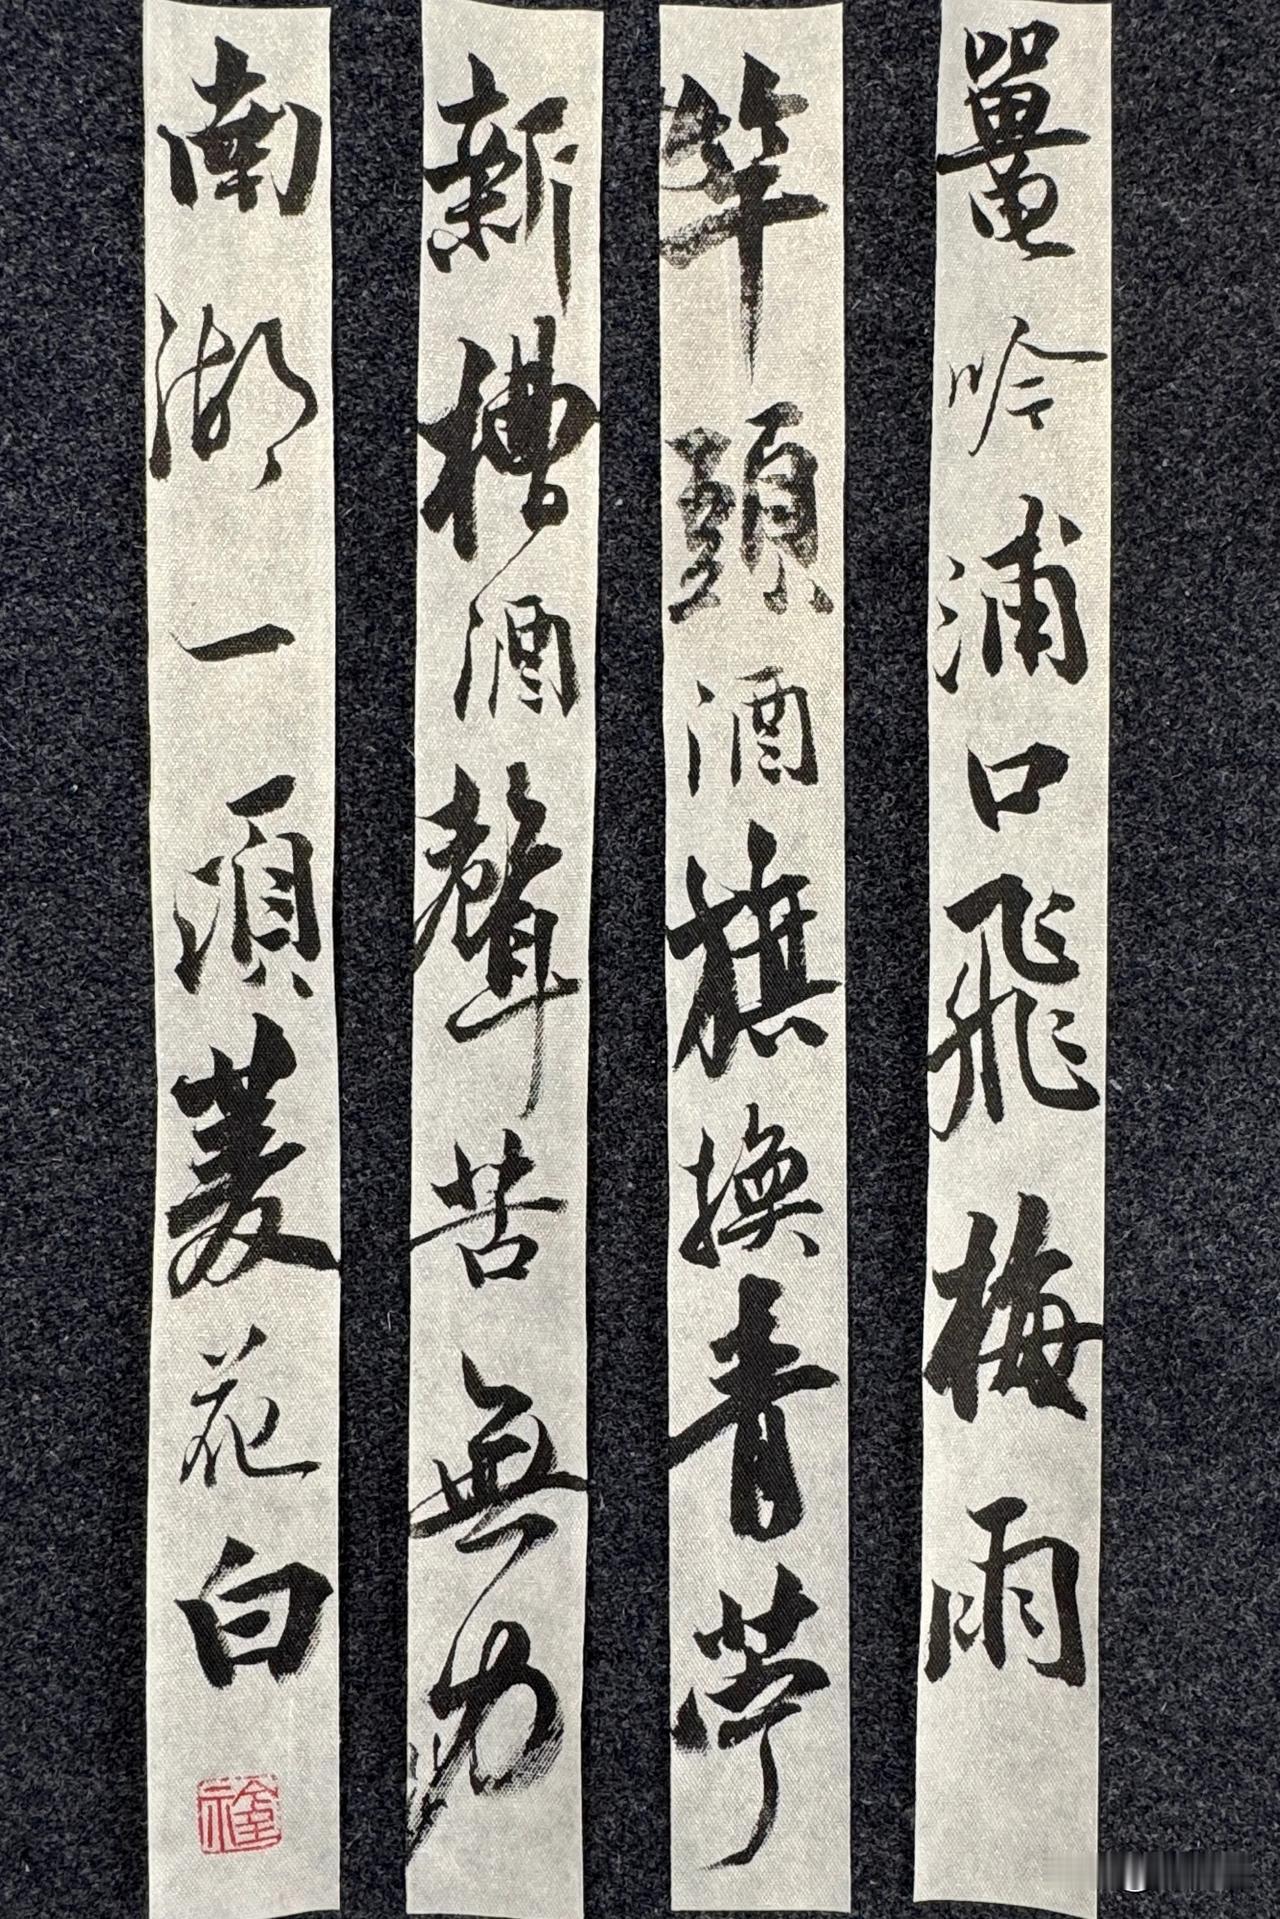 鼉吟浦口飛梅雨
竿頭酒旗換青苧
新槽酒聲苦無力
南湖一頃菱花白